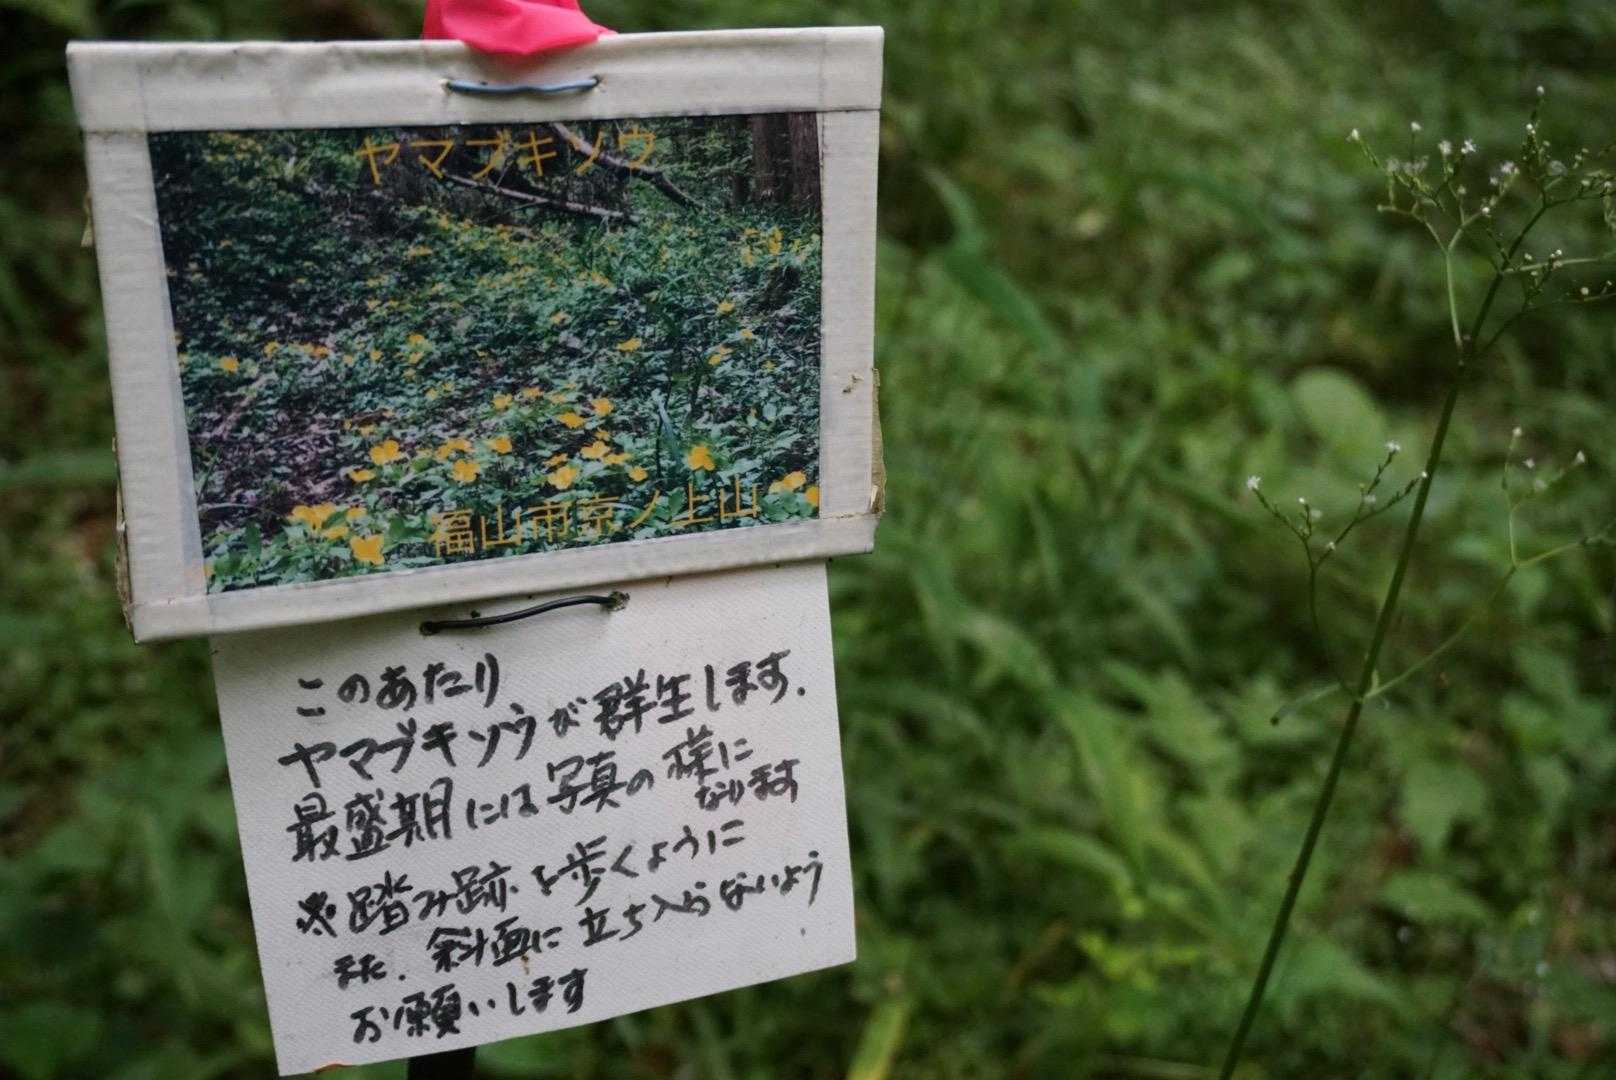 ヤマブキソウ
福山市京ノ上山
このあたり
ヤマブキソウが群生します.
最盛期には写真の様に
なります
※踏み跡を歩くように
また.斜面に立ち入らないよう
お願いします